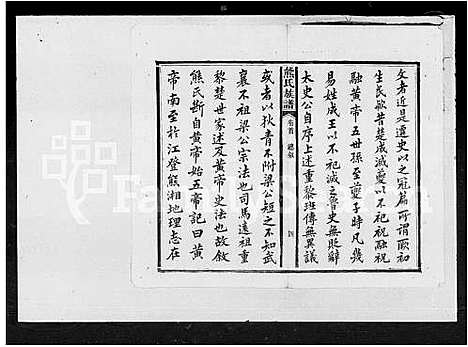 文者近是遷史以之冠篇所謂厥初
生民歟昔楚成滅夔以不祀祝融祝
融黃帝五世孫至夔子時凡幾
易姓成王以不祀滅之魯史無貶辭
太史公自序上述重黎班傳無異議
熊氏族譜
卷首
總敘
四
或者以狄青不附梁公短之不知武
襄不祖梁公宗法也司馬遠祖重
黎楚世家述及黃帝史法也故敘
熊氏斷自黃帝始五帝記曰黃
帝南至於江登熊湘地理志在